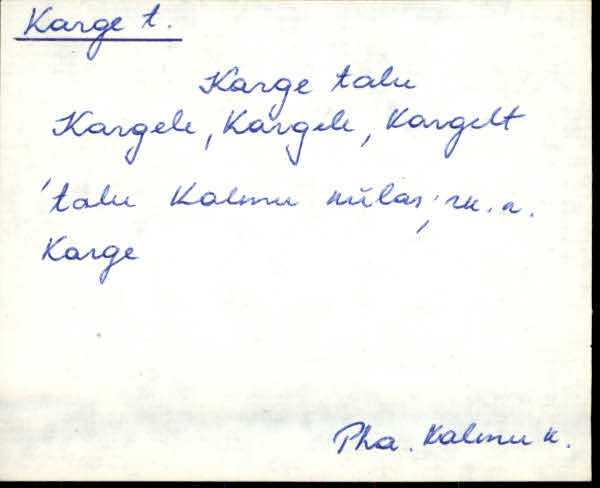 Karge t.
Karge talu
Kargele, Kargele, Kargelt
'talu Kalmu külas; rk. n.
Karge
Pha. Kalmu k.